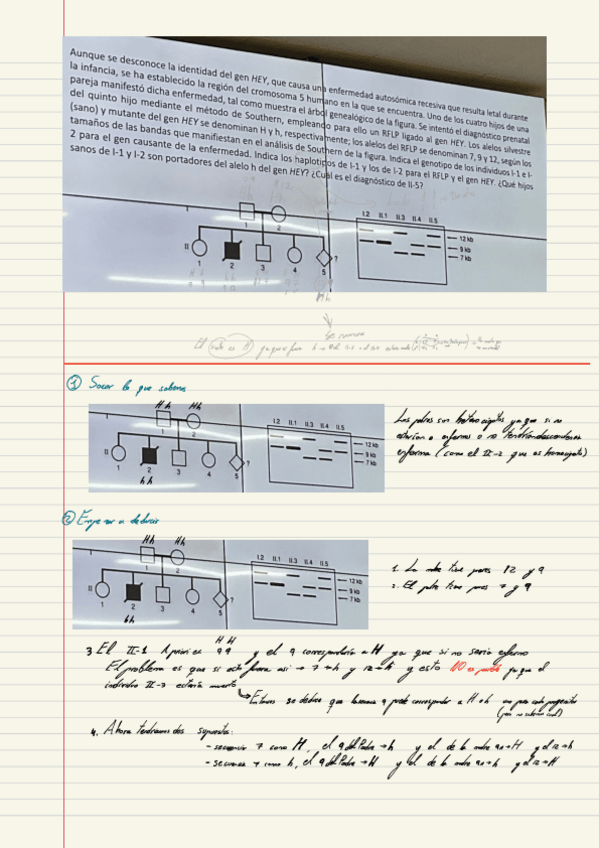 Aunque se desconoce la identidad del gen HEY, que causa una enfermedad autosómica recesiva que resulta letal durante
la infancia, se ha establecido la región del cromosoma 5 humano en la que se encuentra. Uno de los cuatro hijos de una
pareja manifestó dicha enfermedad, tal como muestra el árbol genealógico de la figura. Se intentó el diagnóstico prenatal
del quinto hijo mediante el método de Southern, empleando para ello un RFLP ligado al gen HEY. Los alelos silvestre
(sano) y mutante del gen HEY se denominan H y h, respectivamente; los alelos del RFLP se denominan 7, 9 y 12, según los
tamaños de las bandas que manifiestan en el análisis de Southern de la figura. Indica el genotipo de los individuos I-1 e I-
2 para el gen causante de la enfermedad. Indica los haplotipos de I-1 y los de I-2 para el RFLP y el gen HEY. ¿Qué hijos
sanos de I-1 y I-2 son portadores del alelo h del gen HEY? ¿Cuál es el diagnóstico de II-5?
I
1 2
II
1 2 3 4 5 ?
I.2 II.1 II.3 II.4 II.5
12 kb
9 kb
7 kb
Hh
① Sacar lo que sabemos
Hh Hh
I
1 2
II
1 2 3 4 5 ?
hh
I.2 II.1 II.3 II.4 II.5
12 kb
9 kb
7 kb
Los padres son heterocigotos ya que si no
estarían o enfermos o no tendrían descendencia
enferma (como el II-2 que es homocigoto)
② Empezar a deducir
Hh Hh
I
1 2
II
1 2 3 4 5 ?
hh
I.2 II.1 II.3 II.4 II.5
12 kb
9 kb
7 kb
1. La madre tiene pares 12 y 9
2. El padre tiene pares 7 y 9
3 El II-1 9 9 y el 9 correspondería a H ya que si no sería enfermo
H H
El problema es que si esto fuera así → 7 → h y 12 → h y esto NO es posible ya que el
individuo II-3 estaría muerto
Entonces se deduce que la 9 puede corresponder a H o h
4. Ahora tendríamos dos supuestos:
- secuencia 7 como H, el 9 del Padre → h y el de la madre 9 → H y el 12 → h
- secuencia 7 como h, el 9 del Padre → H y el de la madre 9 → h y el 12 → H